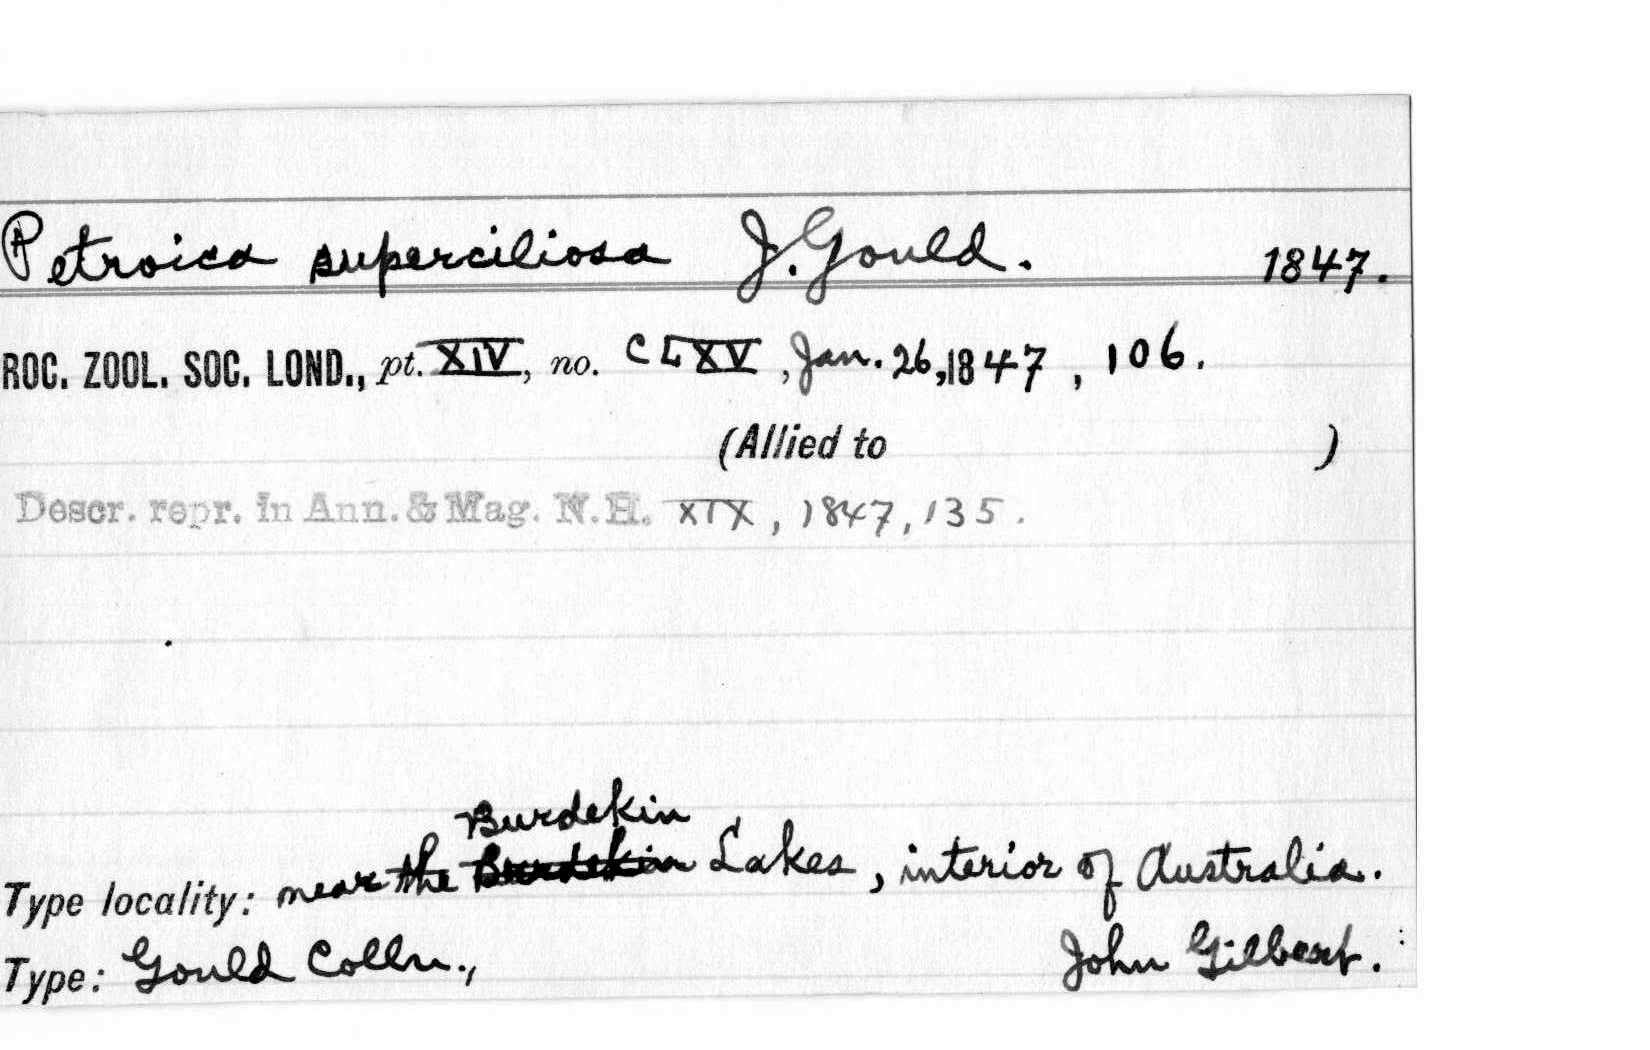 Petroica superciliosa J. Gould. 1847.
ROC. ZOOL. SOC. LOND., pt. XIV, no. CLXV, Jan. 26, 1847, 106.
(Allied to )
Descr. repr. in Ann. & Mag. N.H. XIX, 1847, 135.
Burdekin
Type locality: near the Burdekin Lakes, interior of Australia.
Type: Gould Colln., John Gilbert.